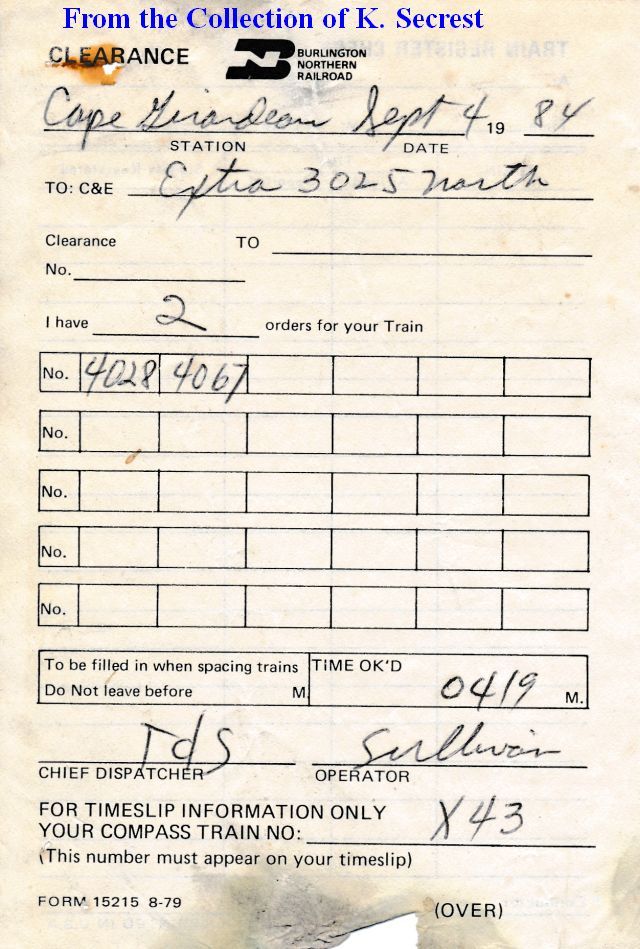 From the Collection of K. Secrest
CLEARANCE BURLINGTON NORTHERN RAILROAD
Cape Girardeau Sept 4 19 84
STATION DATE
TO: C&E Extra 3025 North
Clearance TO
No.
I have 2 orders for your Train
No. 4028 4067
No.
No.
No.
No.
To be filled in when spacing trains TIME OK'D
Do Not leave before M. 0419 M.
TdS Sullivan
CHIEF DISPATCHER OPERATOR
FOR TIMESLIP INFORMATION ONLY
YOUR COMPASS TRAIN NO: X43
(This number must appear on your timeslip)
FORM 15215 8-79 (OVER)